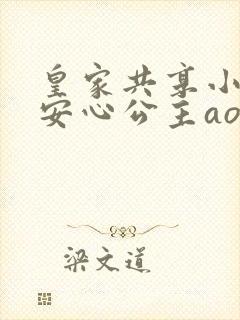 皇家共享小
安心公主ao
梁文道